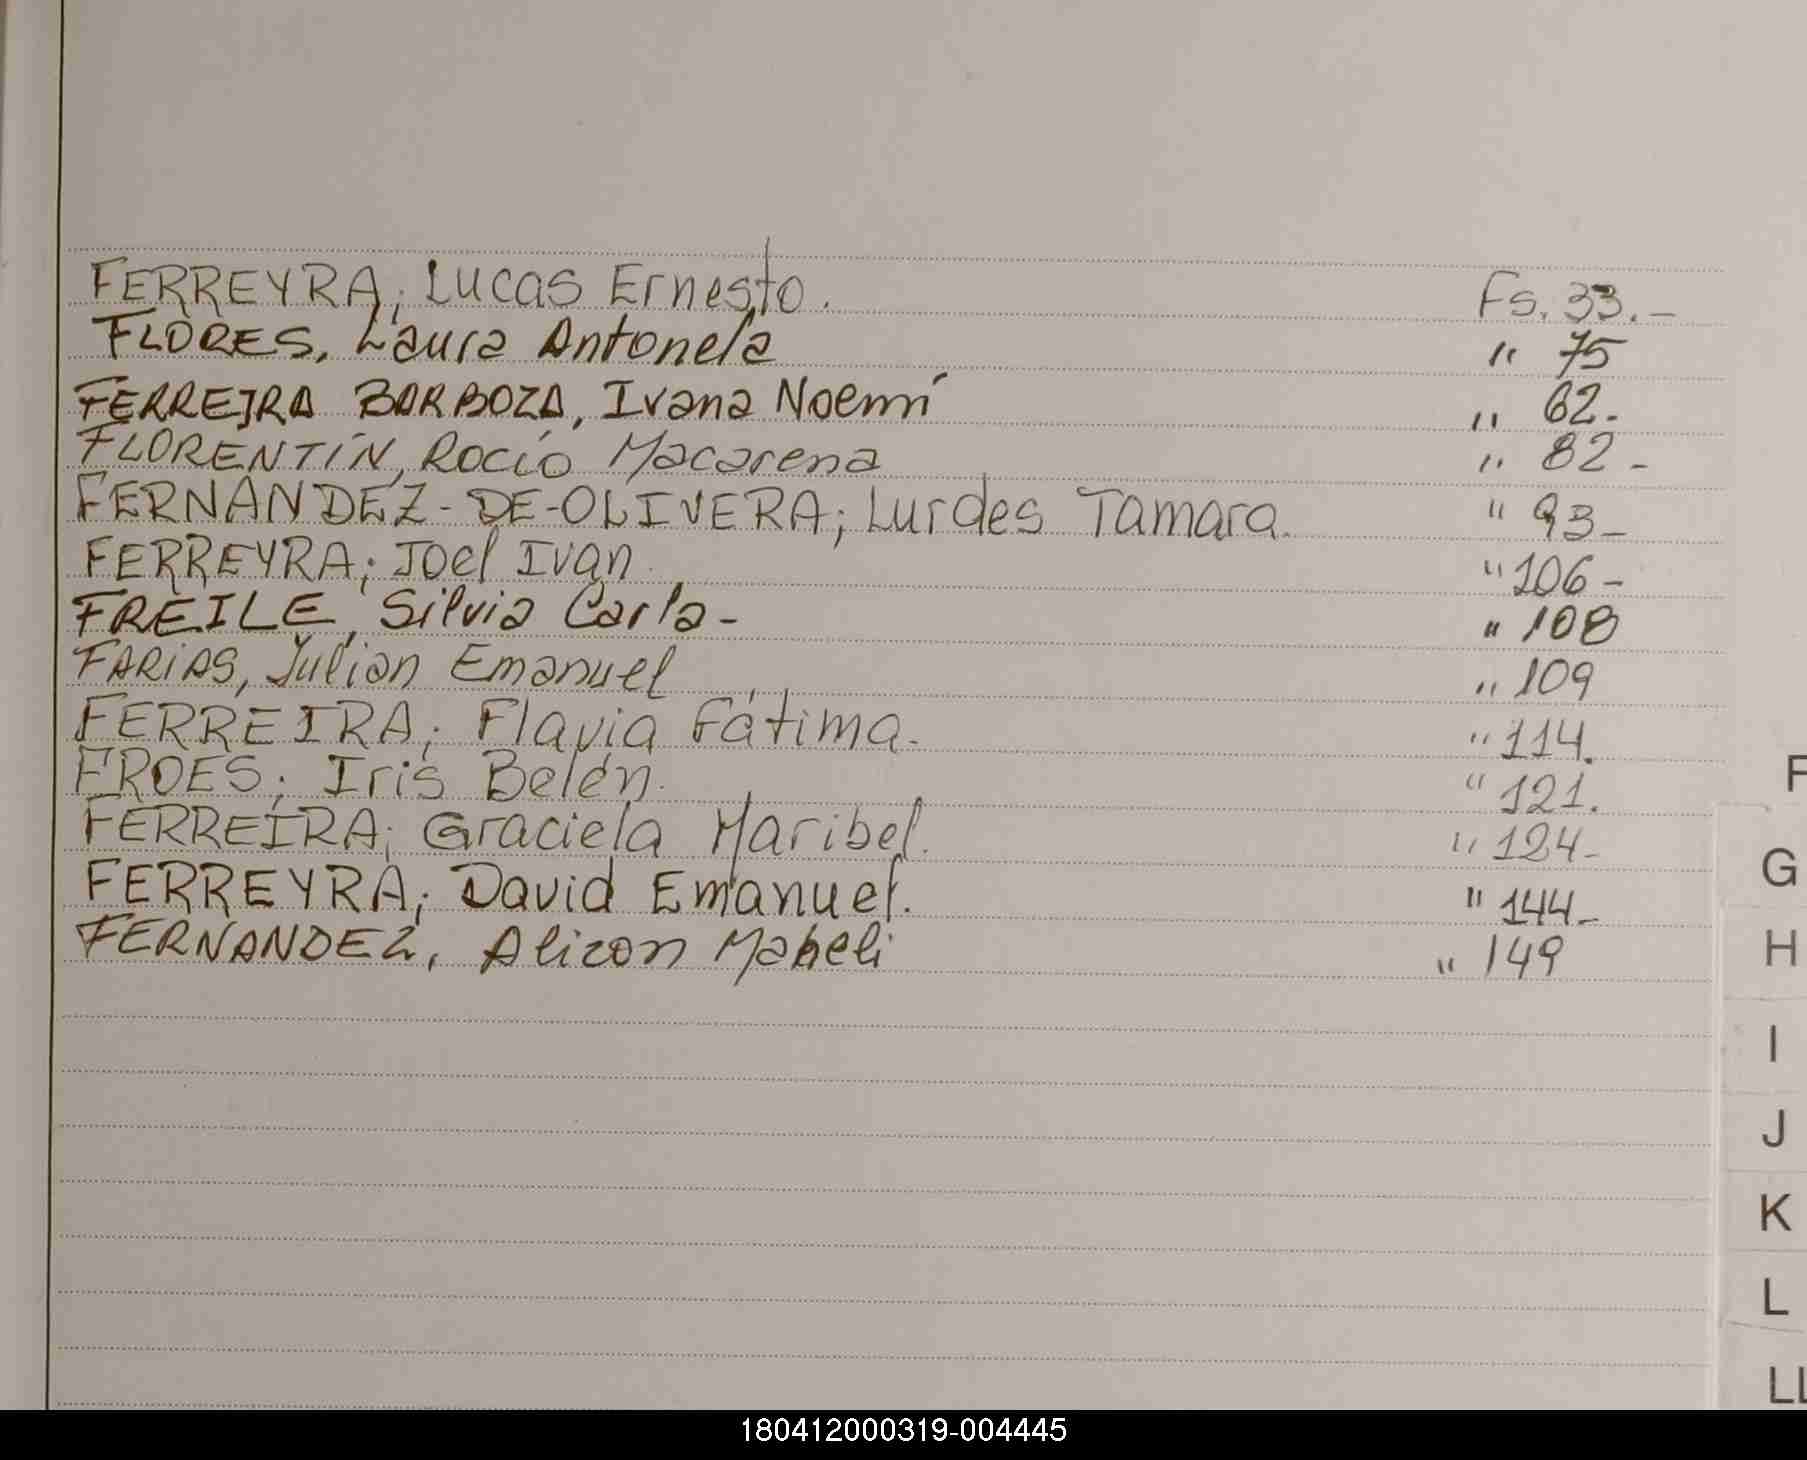 FERREYRA; Lucas Ernesto. Fs. 33.-
FLORES, Laura Antonela " 75
FERREIRA BARBOZA, Ivana Noemí " 62.
FLORENTÍN, Rocío Macarena " 82-
FERNANDEZ-DE-OLIVERA; Lurdes Tamara. " 93-
FERREYRA; Joel Ivan. " 106-
FREILE, Silvia Carla- " 108
FARIAS, Julian Emanuel " 109
FERREIRA; Flavia Fátima. " 114.
FROES; Iris Belén. " 121.
FERREIRA; Graciela Maribel. " 124-
FERREYRA; David Emanuel. " 144-
FERNANDEZ, Alizon Mabeli " 149
F
G
H
I
J
K
L
LL
180412000319-004445